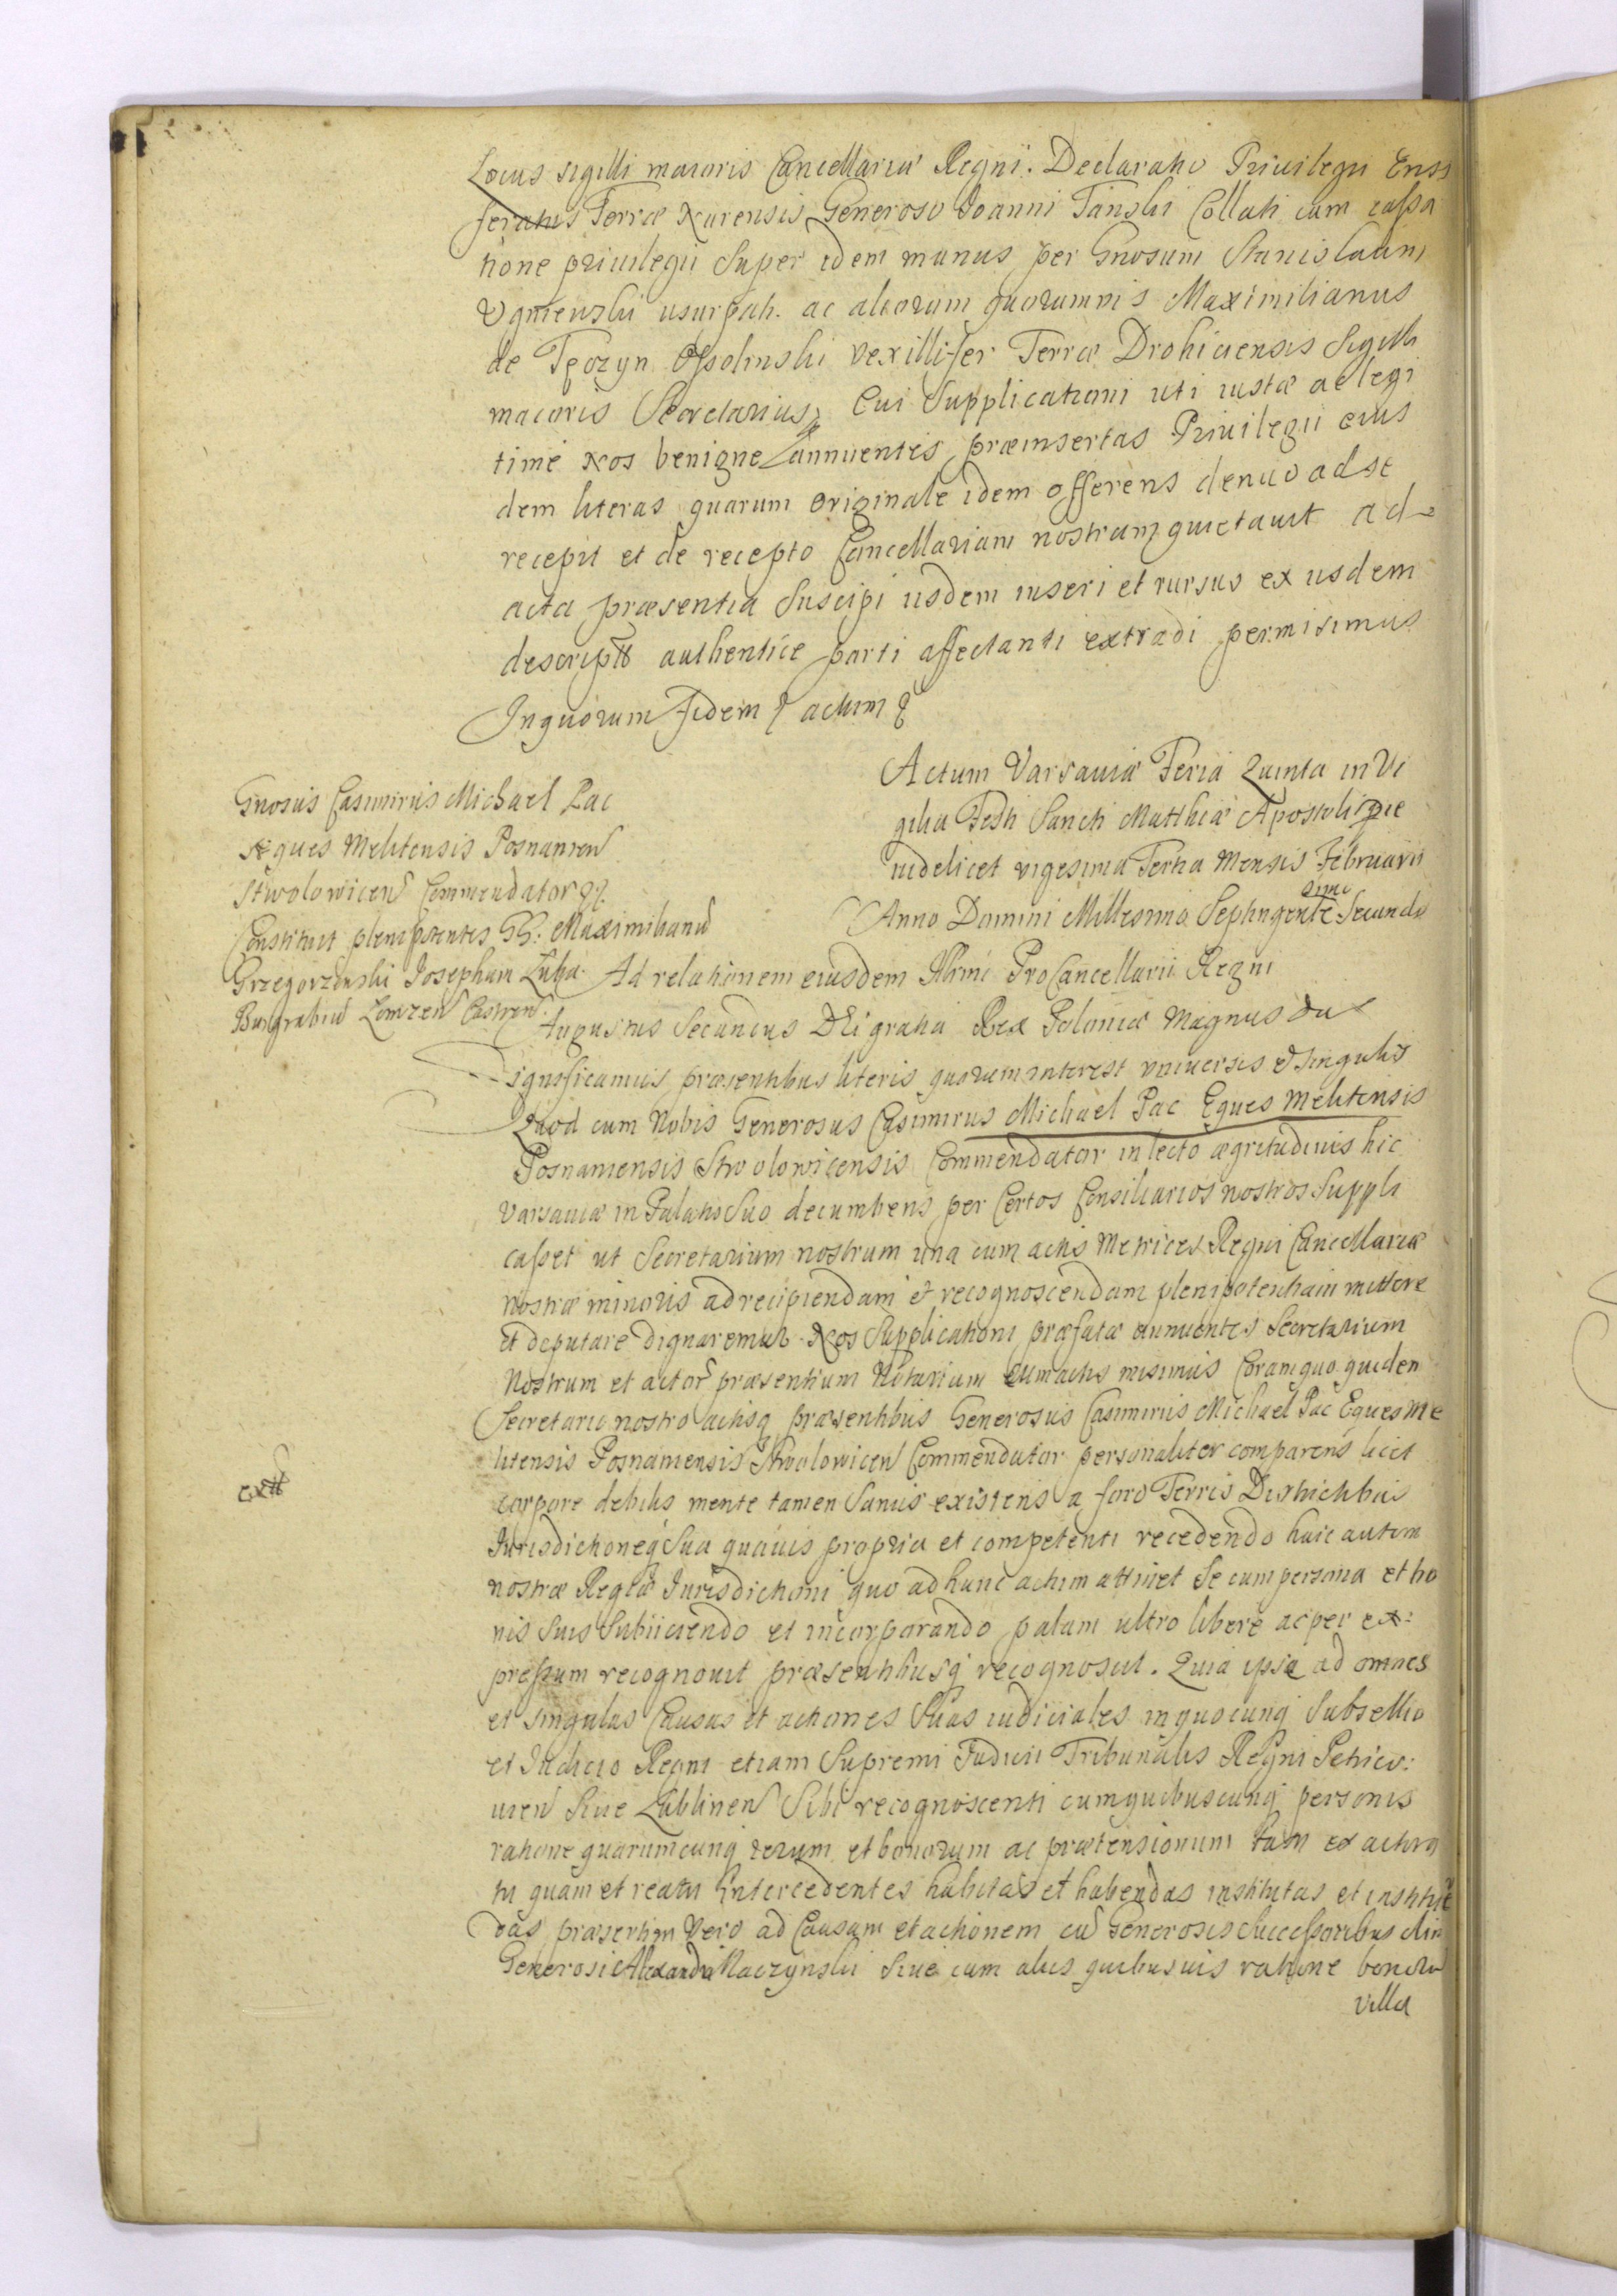 Locus sigilli maioris Cancellariæ Regni. Declaratio Priuilegii Ensi
feratus Terræ Nurensis Generoso Joanni Tanski Collati cum cassa
tione priuilegii Super idem munus per Gnosum Stanislaum
usurpati. ac aliorum quorumuis Maximilianus
de Tęczyn Ossolinski Vexillifer Terræ Drohiciensis Sigilli
maioris Secretarius, Cui Supplicationi uti iustæ ac legi
timè Nos benigne annuentes præinsertas Priuilegii eius
dem literas quarum originale idem offerens denuo ad se
recepit et de recepto Cancellariam nostram quietauit ad
acta præsentia Suscipi iisdem inseri et rursus ex iisdem
descriptũ authentice parti affectanti extradi permisimus
In quorum fidem actum
Actum Varsauiæ Feria Quinta in Vi
gilia Festi Sancti Matthiæ Apostoli die
uidelicet vigesima Tertia Mensis Februarii
Anno Domini Millesimo Septingente simo Secundo
Gnosus Casimirus Michael Pac
Eques Melitensis Posnanien
Stwolowicen Commendator
Constituit plenipotentes GG: Maximilianũ
Grzegorzewski Josephum Luba
Burgrabiũ Lomzen Castren
Ad relationem eiusdem Illrmi ProCancellarii Regni
Augustus Secundus DEi gratia Rex Poloniæ Magnus Dux
Significamus præsentibus literis quorum interest vniuersis et singulis
Quod cum Nobis Generosus Casimirus Michael Pac Eques Melitensis
Posnaniensis Stwolowicensis Commendator in lecto ægritudinis hic
Varsauiæ in Palatio Suo decumbens per Certos Consiliarios nostros Suppli
casset ut Secretarium nostrum una cum actis Metrices Regni Cancellariæ
nostræ minoris ad recipiendam et recognoscendam plenipotentiam mittere
et deputare dignaremur. Nos Supplicationi præfatæ annuentes Secretarium
Nostrum et actor præsentium Notarium cum actis misimus Coram quo quidem
Secretario nostro actisq præsentibus Generosus Casimirus Michael Pac Eques Me
litensis Posnaniensis Stwolowicen Commendator personaliter comparens licet
extt
corpore debilis mente tamen Sanus existens a foro Terris Districtibus
Iurisdictioneq Sua quauis propria et competenti recedendo huic autem
nostræ Regiæ Iurisdictioni quo ad hunc actum attinet Se cum persona et bo
nis Suis Subiiciendo et incorporando palam ultro libere ac per ex:
pressum recognouit præsentibusq recognoscit. Quia ipse ad omnes
et Singulas Causas et actiones Suas iudiciales in quocunq Subsellio
et Iudicio Regni etiam Supremi Iudicii Tribunalis Regni Petrico:
uien Siue Lublinen Sibi recognoscenti cum quibuscunq personis
ratione quarumcunq rerum et bonorum ac prætensionum tam ex actora
tu quam et reatu intercedentes habitas et habendas institutas et instituẽ
das præsertim Vero ad Causam et actionem cũ Generosis Successoribus olim
Generosi Alexandri Raczynski Siue cum aliis quibusuis ratione bonorũ
Villæ